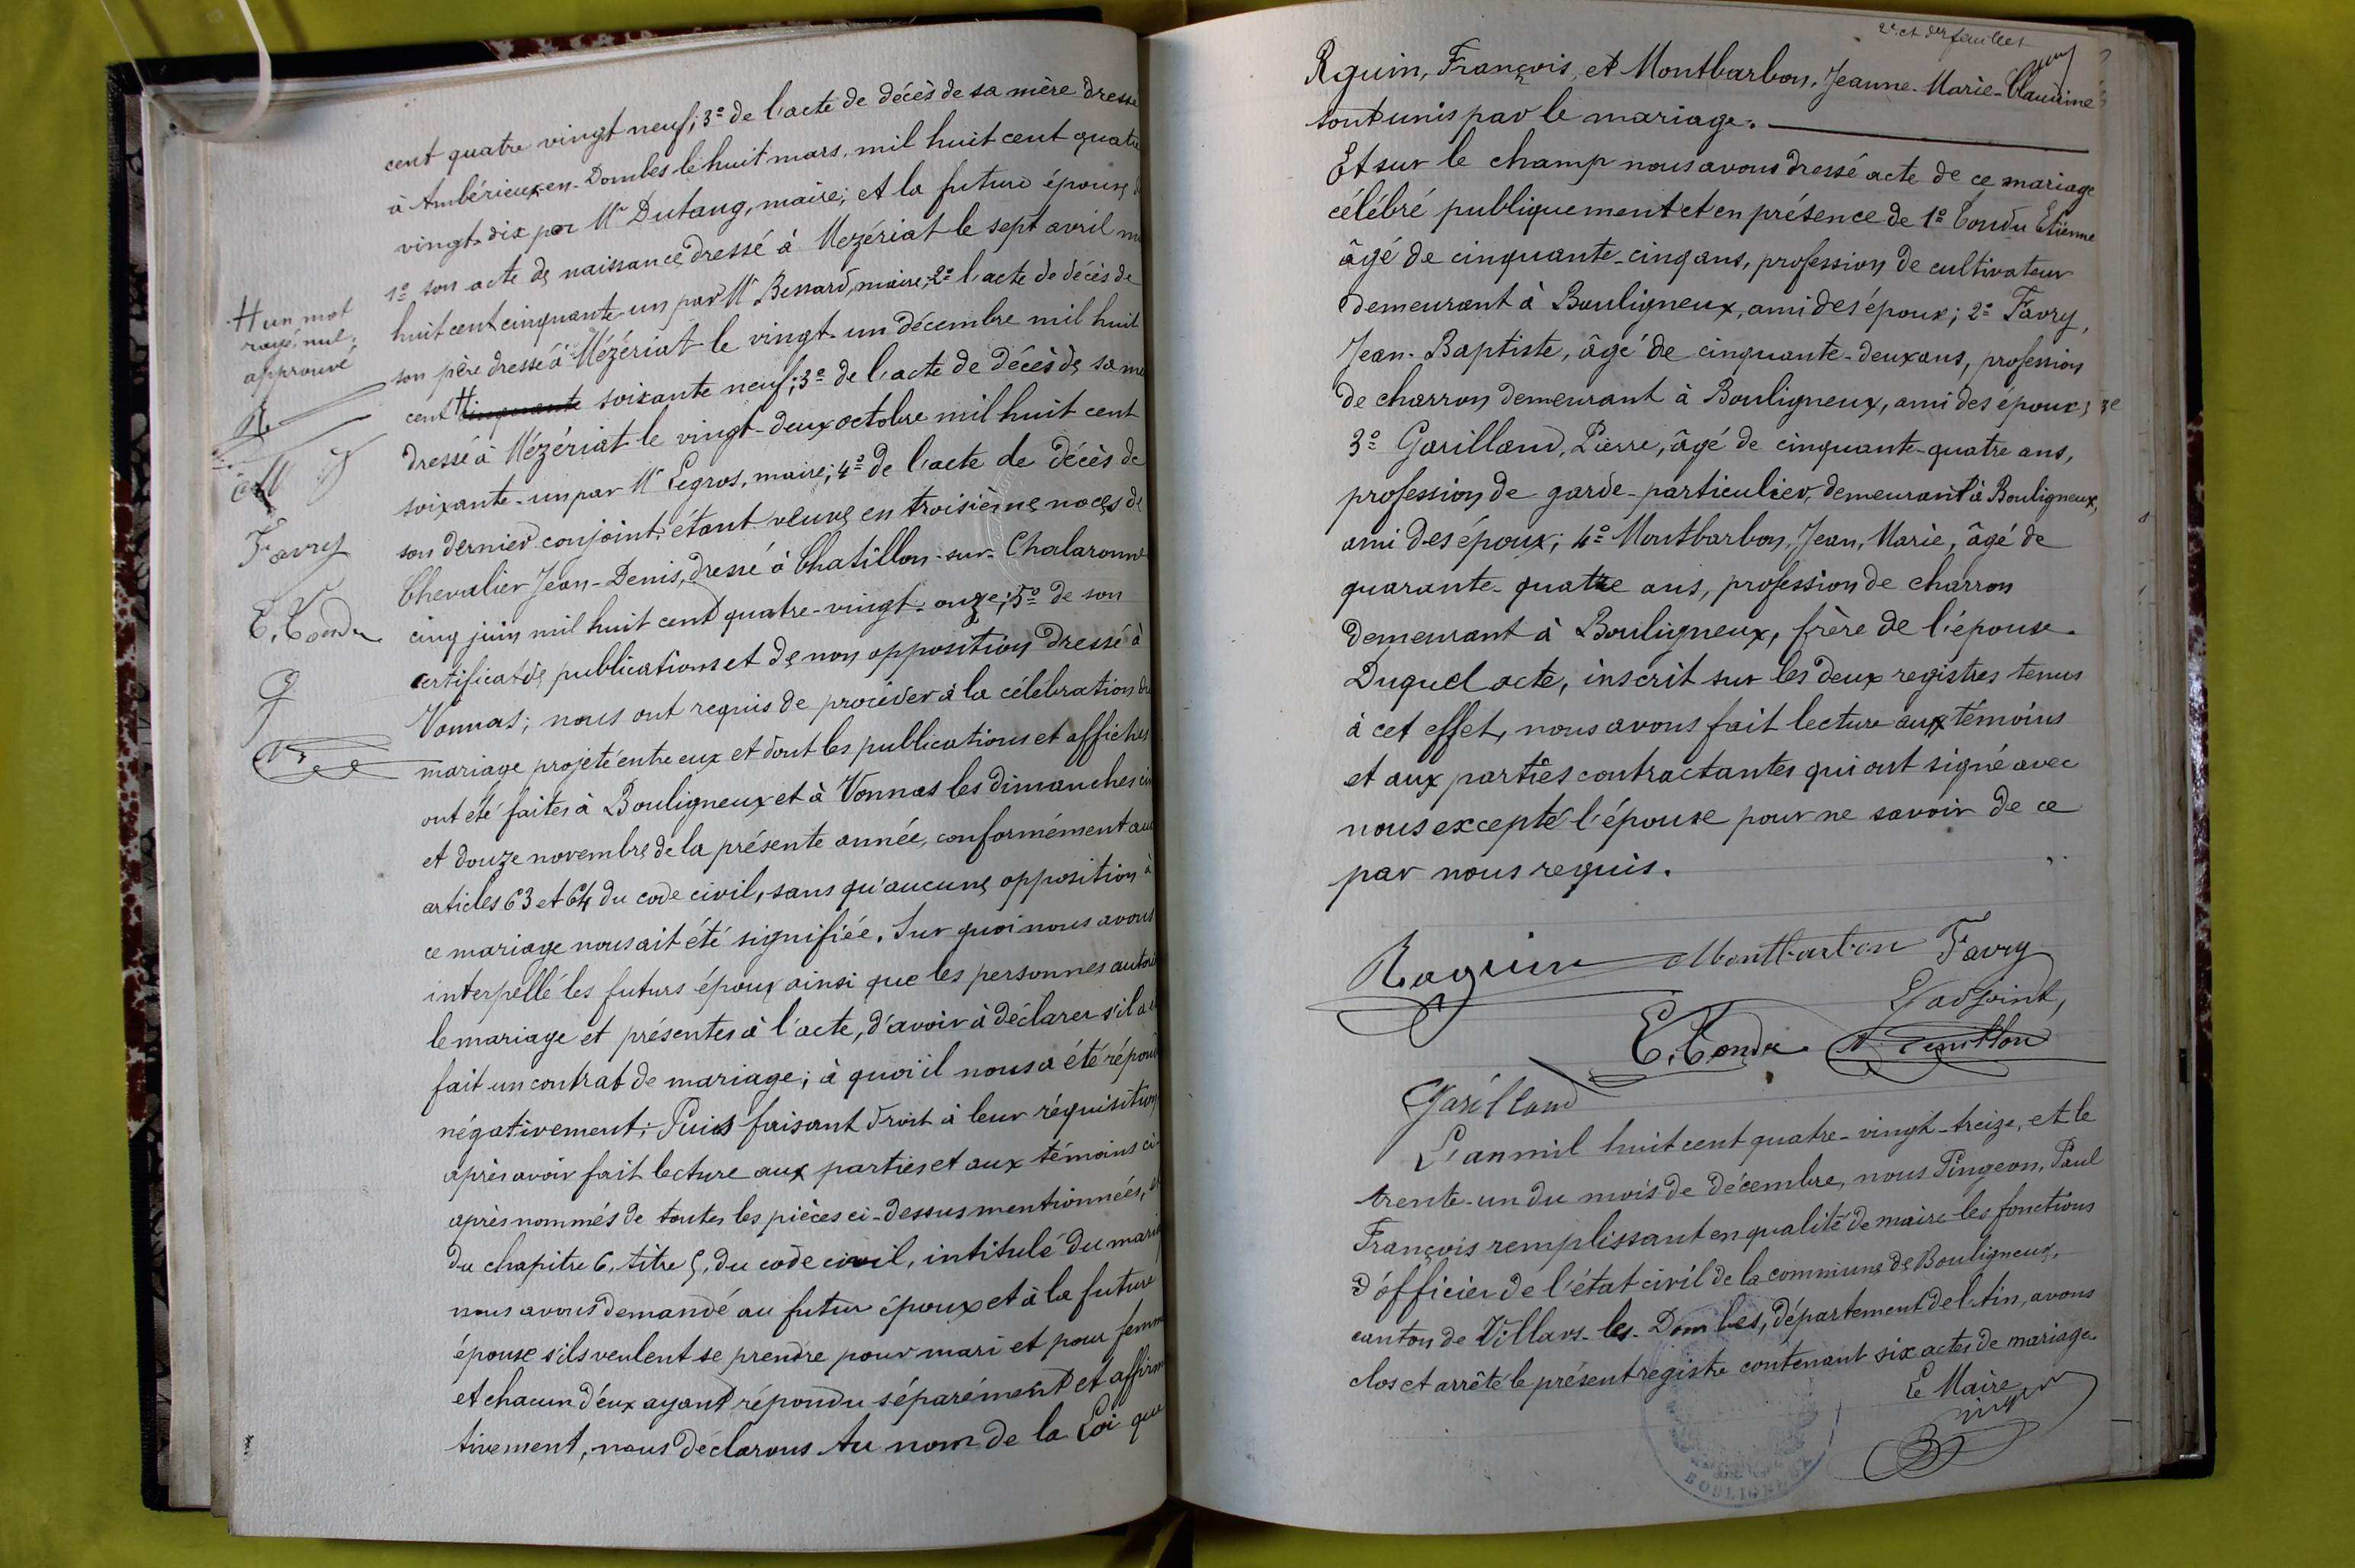 cent quatre vingt neuf; 3º de l'acte de décès de sa mère dressé
à Ambérieux-en-Dombes le huit mars, mil huit cent quatre
vingt-dix par Mr Dutang, maire; et la future épouse, d
1º son acte de naissance dressé à Mézériat le sept avril mil
huit cent cinquante-un par Mr Bessard, maire; 2º l'acte de décès de
son père dressé à Mézériat le vingt-un décembre mil huit
cent # cinquante soixante neuf; 3º de l'acte de décès de sa mè
dressé à Mézériat le vingt-deux octobre mil huit cent
soixante-un par Mr Legros, maire; 4º de l'acte de décès de
son dernier conjoint, étant veuve en troisième noces de
Chevalier Jean-Denis, dressé à Chatillon-sur-Chalaronne
cinq juin mil huit cent quatre-vingt-onze; 5º de son
certificat de publications et de non opposition dressé à
Vonnas; nous ont requis de procéder à la célébration du
mariage projeté entre eux et dont les publications et affiches
ont été faites à Bouligneux et à Vonnas les dimanches cin
et douze novembre de la présente année, conformément aux
articles 63 et 64 du code civil, sans qu'aucune opposition à
ce mariage nous ait été signifiée. Sur quoi nous avons
interpellé les futurs époux ainsi que les personnes autori
le mariage et présentes à l'acte, d'avoir à déclarer s'il a é
fait un contrat de mariage; à quoi il nous a été répond
négativement; Puis faisant droit à leur réquisition
après avoir fait lecture aux parties et aux témoins ci-
après nommés de toutes les pièces ci-dessus mentionnées, et
du chapitre 6, titre 5, du code civil, intitulé du mariag
nous avons demandé au futur époux et à la future
épouse s'ils veulent se prendre pour mari et pour femme
et chacun d'eux ayant répondu séparément et affirma
tivement, nous déclarons Au nom de la Loi que
# un mot
rayé nul
approuvé
R
Favry
E. Condu
G
2e et der feuillet
Rguin, François, et Montbarbon, Jeanne-Marie-Claudine
sont unis par le mariage.
Et sur le champ nous avons dressé acte de ce mariage
célébré publiquement et en présence de 1º Condu Etienne
âgé de cinquante-cinq ans, profession de cultivateur
demeurant à Bouligneux, ami des époux; 2º Favry,
Jean-Baptiste, âgé de cinquante-deux ans, profession
de charron demeurant à Bouligneux, ami des époux;
3º Garilland, Pierre, âgé de cinquante-quatre ans,
profession de garde-particulier, demeurant à Bouligneux,
ami des époux; 4º Montbarbon, Jean, Marie, âgé de
quarante-quatre ans, profession de charron
demeurant à Bouligneux, frère de l'épouse.
Duquel acte, inscrit sur les deux registres tenus
à cet effet, nous avons fait lecture aux témoins
et aux parties contractantes qui ont signé avec
nous excepté l'épouse pour ne savoir de ce
par nous requis.
Raguin Montbarbon Favry
L'adjoint,
E. Condu
Garilland
L'an mil huit cent quatre-vingt-treize, et le
trente-un du mois de décembre, nous Pingeon, Paul
François remplissant en qualité de maire les fonctions
d'officier de l'état civil de la commune de Bouligneux,
canton de Villars-les-Dombes, département de l'Ain, avons
clos et arrêté le présent registre contenant six actes de mariage.
Le Maire
Pingeon
BOULIGNEUX